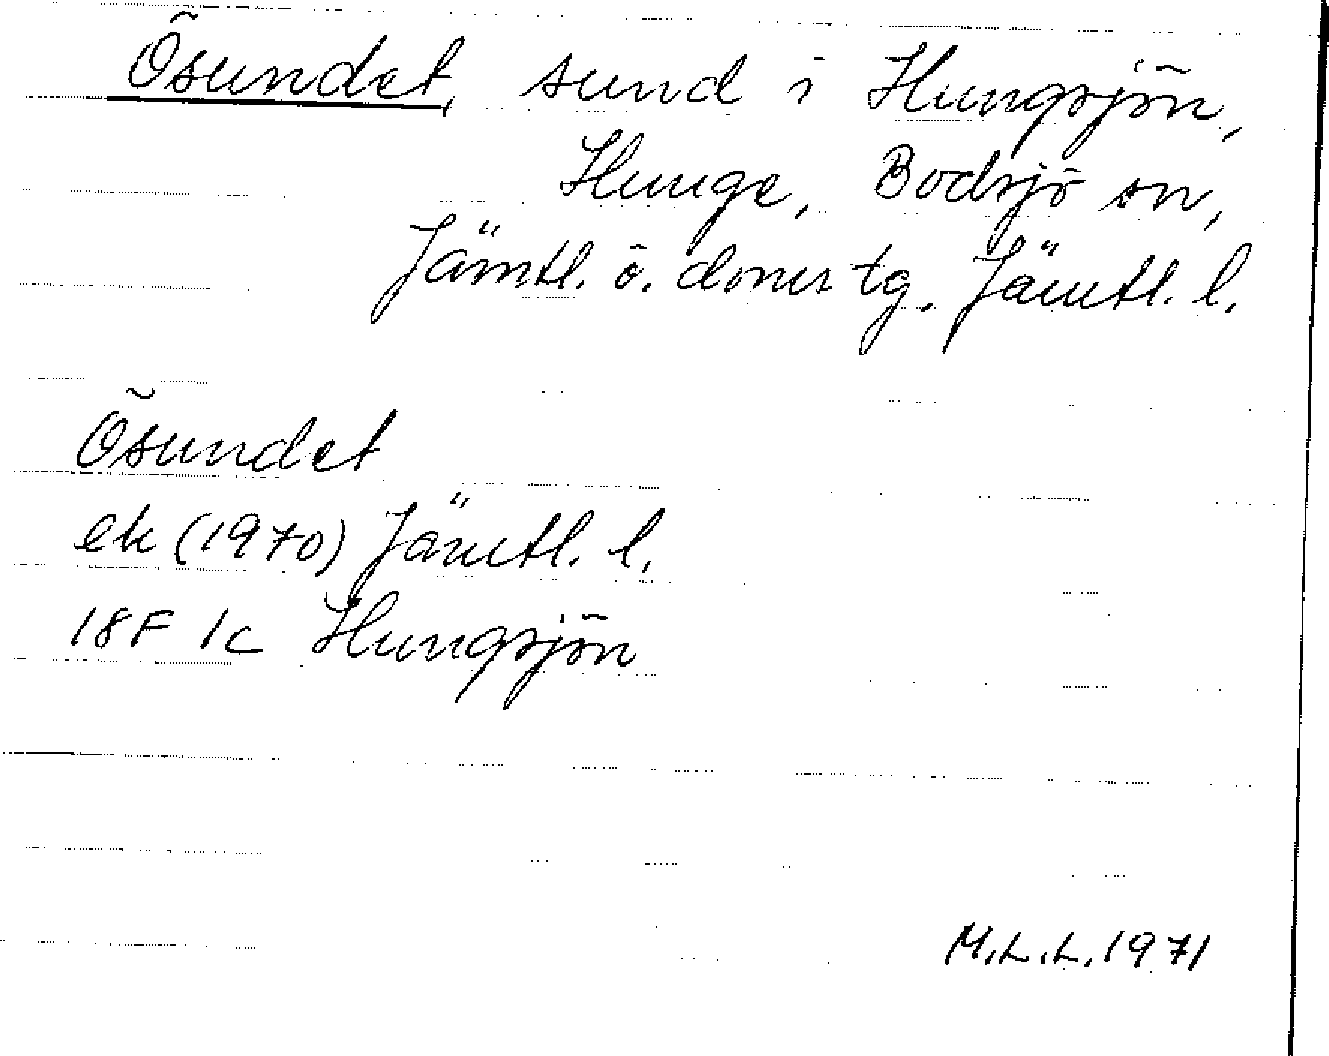 Ösundet, sund i Hungsjön,
Hunge, Bodsjö sn,
Jämtl. ö. doms tg. Jämtl. l.
Ösundet
ek (1970) Jämtl. l.
18F 1c Hungsjön
M.L.L. 1971